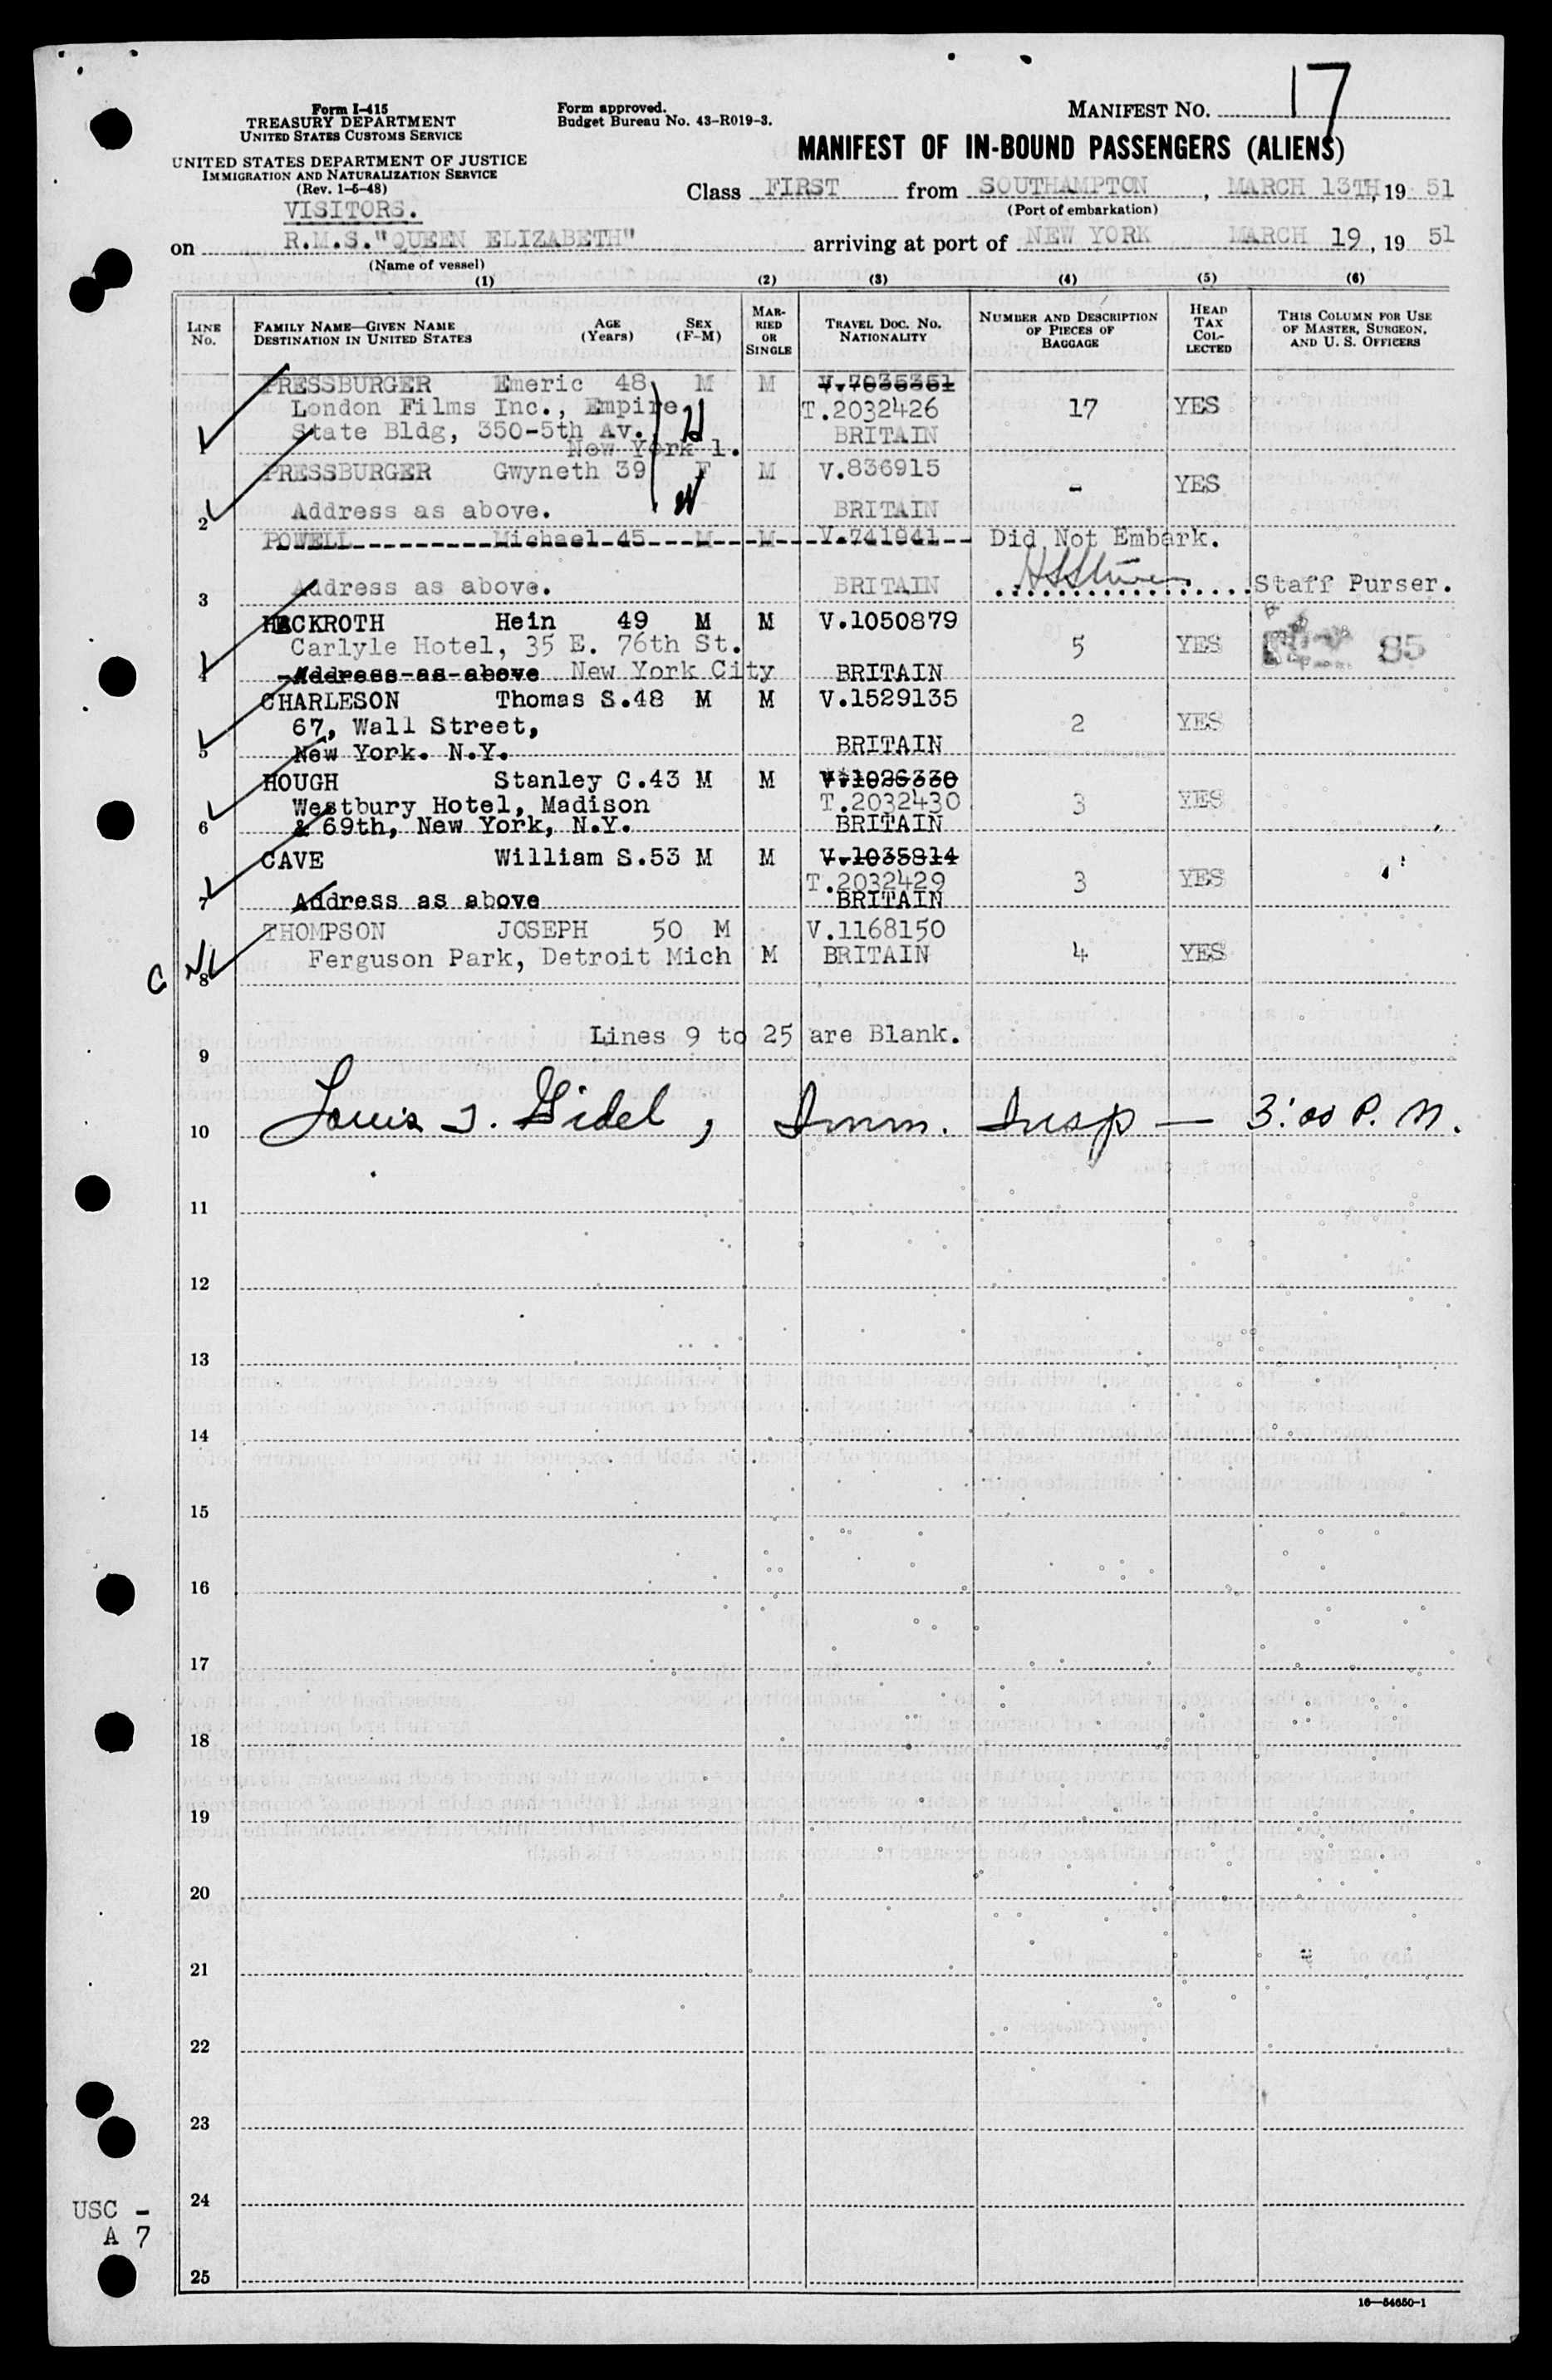 17
Form I-415
TREASURY DEPARTMENT
UNITED STATES CUSTOMS SERVICE
UNITED STATES DEPARTMENT OF JUSTICE
IMMIGRATION AND NATURALIZATION SERVICE
(Rev. 1-5-48)
VISITORS.
Form approved.
Budget Bureau No. 43-R019-3.
MANIFEST NO.
MANIFEST OF IN-BOUND PASSENGERS (ALIENS)
Class FIRST from SOUTHAMPTON, MARCH 13TH, 19 51
(Port of embarkation)
on R.M.S."QUEEN ELIZABETH" arriving at port of NEW YORK MARCH 19, 19 51
(Name of vessel)
(1) (2) (3) (4) (5) (6)
LINE NO.
FAMILY NAME—GIVEN NAME
DESTINATION IN UNITED STATES
AGE (Years)
SEX (F-M)
MARRIED OR SINGLE
TRAVEL DOC. NO.
NATIONALITY
NUMBER AND DESCRIPTION OF PIECES OF BAGGAGE
HEAD TAX COLLECTED
THIS COLUMN FOR USE OF MASTER, SURGEON, AND U. S. OFFICERS
PRESSBURGER Emeric 48 M M V.7035351
London Films Inc., Empire T.2032426 17 YES
State Bldg, 350-5th Av. BRITAIN
1 New York 1.
PRESSBURGER Gwyneth 39 F M V.836915 - YES
2 Address as above. BRITAIN
POWELL Michael 45 M M V.741941 Did Not Embark.
3 Address as above. BRITAIN Staff Purser.
HECKROTH Hein 49 M M V.1050879
Carlyle Hotel, 35 E. 76th St. 5 YES 85
4 Address as above New York City BRITAIN
CHARLESON Thomas S. 48 M M V.1529135
67, Wall Street, 2 YES
5 New York. N.Y. BRITAIN
HOUGH Stanley C. 43 M M V.1026330
Westbury Hotel, Madison T.2032430 3 YES
6 & 69th, New York, N.Y. BRITAIN
CAVE William S. 53 M M V.1035814
T.2032429 3 YES
7 Address as above BRITAIN
THOMPSON JOSEPH 50 M V.1168150
C 8 Ferguson Park, Detroit Mich M BRITAIN 4 YES
Lines 9 to 25 are Blank.
9
10 Louis J. Gidel, Imm. Insp — 3:00 P. M.
11
12
13
14
15
16
17
18
19
20
21
22
23
24
25
USC -
A 7
16—54650-1